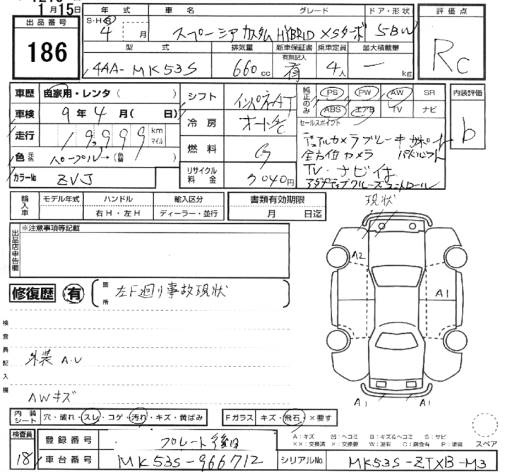 1月15日
出品番号
186
S・H・R 年式
グレード
ドア・形状
4 年 月
スペーシアカスタムHYBRID XSターボ
5BW
評価点
RC
型式
排気量
新車保証書
乗車定員
最大積載量
有無記入
4AA-MK53S
660 cc
有
4人
kg
車歴
自家用・レンタ
車検
9年4月( 日)
走行
19,999
km
マイル
色
パープル
カラーNo
ZVJ
シフト
インパネAT
冷房
オートAC
燃料
リサイクル料金
円
純正のみ
PS PW AW SR
ABS エアB TV ナビ
セールスポイント
デュアルカメラブレーキサポート
全方位カメラ
TV・ナビ付
アダプティブクルーズコントロール
内装評価
b
輸入車
モデル年式
ハンドル
右H・左H
輸入区分
ディーラー・並行
書類有効期限
月 日迄
現状
出品店申告欄
※注意事項等記載
修復歴
有
箇所
左F廻り事故現状
検査員記入欄
外装 A.U
AWキズ
A2
A1
A1
A1
内装シート
穴・破れ・スレ・コゲ・汚れ・キズ・黄ばみ
Fガラス
キズ・飛石・×要す
検査員
18
登録番号
プレート後日
車台番号
MK53S-966712
シリアルNo
MK53S-ZTXB-M3
スペア